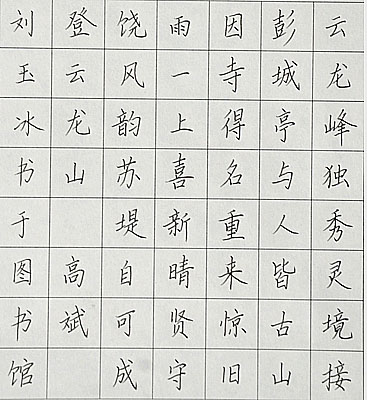 云龙峰独秀灵境接
彭城亭与人皆古山
因寺得名重来惊旧
雨一上喜新晴贤守
饶风韵苏堤自可成
登云龙山 高斌
刘玉冰书于图书馆